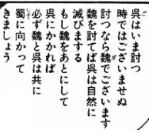 呉はいま討つ
時ではございませぬ
討つなら魏でございます
魏を討てば呉は自然に
滅びまする
もし魏をあとにして
呉にかかれば
必ず魏と呉は共に
蜀に向かって
きましょう